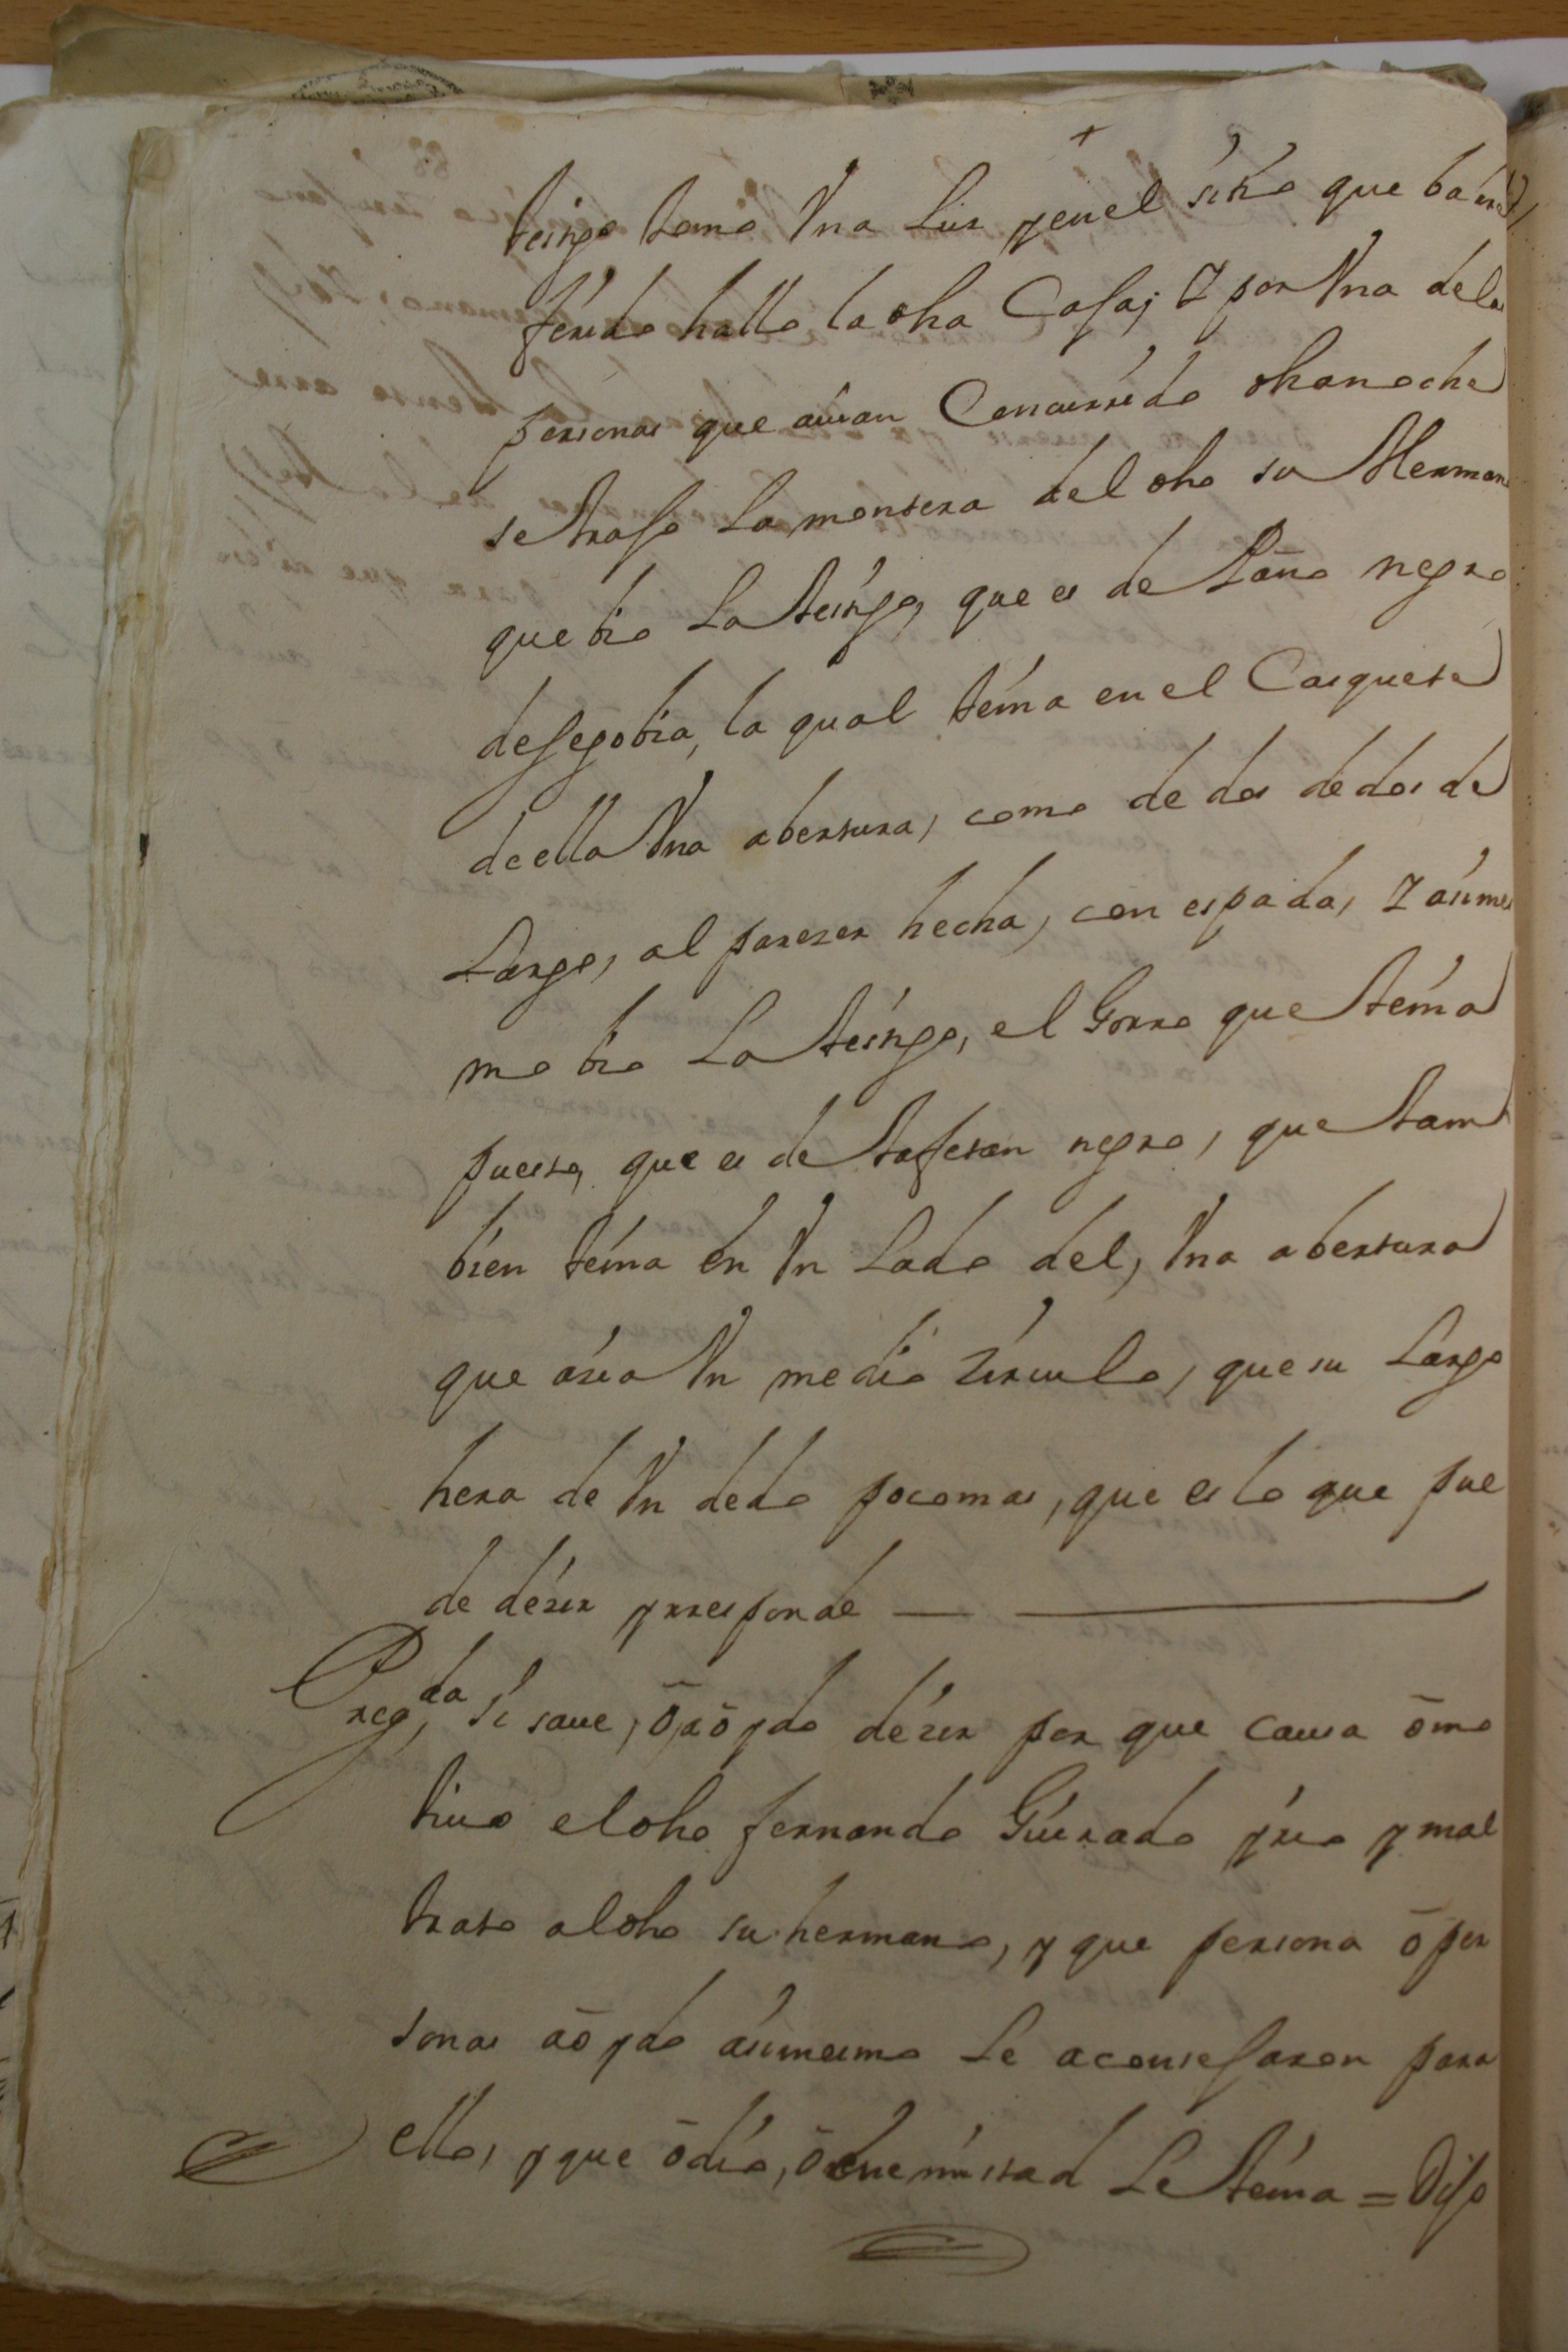 +
teingo tomo Vna Luz y en el sitio que ba
ferido hallo la dha Casa; Y por Vna de las
personas que auian Concurrido dha noche
se trajo La montera del dho su Herman
que bio La teingo, que es de Paño negro
de segobia, la qual tenia en el Casquete
de ella Vna abertura, como de dos dedos de
Largo, al parezer hecha, con espada, Y asimes
mo bio La teingo, el Gorro que tenia
puesto, que es de tafetan negro, que tam
bien tenia en Vn Lado del, Vna abertura
que asia Vn medio zirculo, que su Largo
hera de Vn dedo poco mas, que es lo que pue
de dezir y rresponde —
Preg,da si saue, o a oydo dezir por que causa o mo
tiuo el dho fernando Guirado yrio y mal
trato al dho su hermano, y que persona o per
sonas a oydo asimesmo Le aconsejaron para
ello, y que odio, o enemistad Le tenia = Dijo